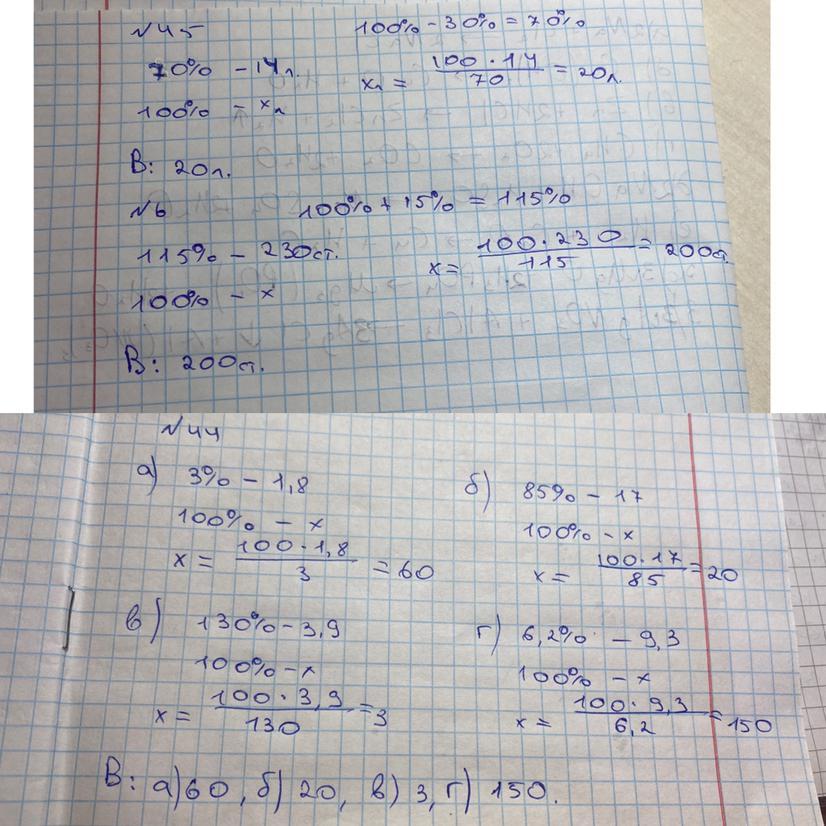 №45 100% - 30% = 70%
70% - 14л.
100% - xл
xл = 100 · 14 / 70 = 20л.
В: 20л.
№6 100% + 15% = 115%
115% - 230ст.
100% - x
x = 100 · 230 / 115 = 200ст.
В: 200ст.
№44
а) 3% - 1,8
100% - x
x = 100 · 1,8 / 3 = 60
б) 85% - 17
100% - x
x = 100 · 17 / 85 = 20
в) 130% - 3,9
100% - x
x = 100 · 3,9 / 130 = 3
г) 6,2% - 9,3
100% - x
x = 100 · 9,3 / 6,2 = 150
В: а) 60, б) 20, в) 3, г) 150.